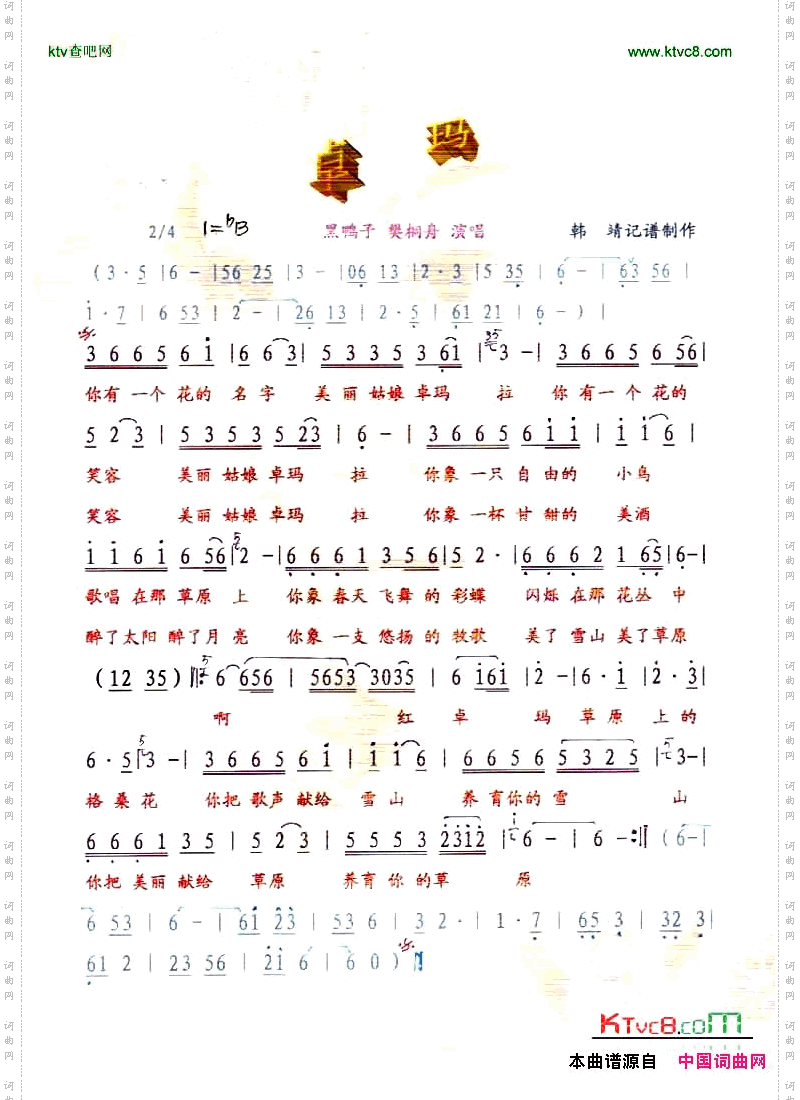 ktv查吧网 www.ktvc8.com
卓 玛
2/4 1=bB 黑鸭子 樊桐舟 演唱 韩 靖记谱制作
(3·5 | 6 - | 56 25 | 3 - | 06 13 | 2·3 | 5 35 | 6 - | 63 56 |
i·7 | 6 53 | 2 - | 26 13 | 2·5 | 61 21 | 6 - ) |
3 6 6 5 6 i | 6 6 3 | 5 3 3 5 3 61 | 3 - | 3 6 6 5 6 56 |
你有 一个 花的 名字 美丽 姑娘 卓玛 拉 你 有 一 个 花的
5 2 3 | 5 3 5 3 5 23 | 6 - | 3 6 6 5 6 i i | i i 6 |
笑容 美丽 姑娘 卓玛 拉 你象 一只 自由的 小鸟
笑容 美丽 姑娘 卓玛 拉 你象 一杯 甘甜的 美酒
i i 6 i 6 56 | 2 - | 6 6 6 1 3 5 6 | 5 2· | 6 6 6 2 1 65 | 6 - |
歌唱 在那 草原 上 你象 春天 飞舞 的 彩蝶 闪烁 在那 花丛 中
醉了太阳 醉了月 亮 你象 一支 悠扬 的 牧歌 美了 雪山 美了草原
(12 35) 6 656 | 5653 3035 | 6 i6i | 2 - | 6·i | 2·3 |
啊 红 卓 玛 草 原 上 的
6·5 3 - | 3 6 6 5 6 i | i i 6 | 6 6 5 6 5 3 2 5 | 3 - |
格 桑 花 你把 歌声 献给 雪山 养 育 你的 雪 山
6 6 6 1 3 5 | 5 2 3 | 5 5 5 3 23i2 | 6 - | 6 - :|| (6 - |
你把 美丽 献给 草原 养育 你 的草 原
6 53 | 6 - | 6i 23 | 53 6 | 3 2· | 1·7 | 65 3 | 32 3 |
61 2 | 23 56 | 2i 6 | 6 0 )
KTvc8.com
本曲谱源自 中国词曲网
词曲网